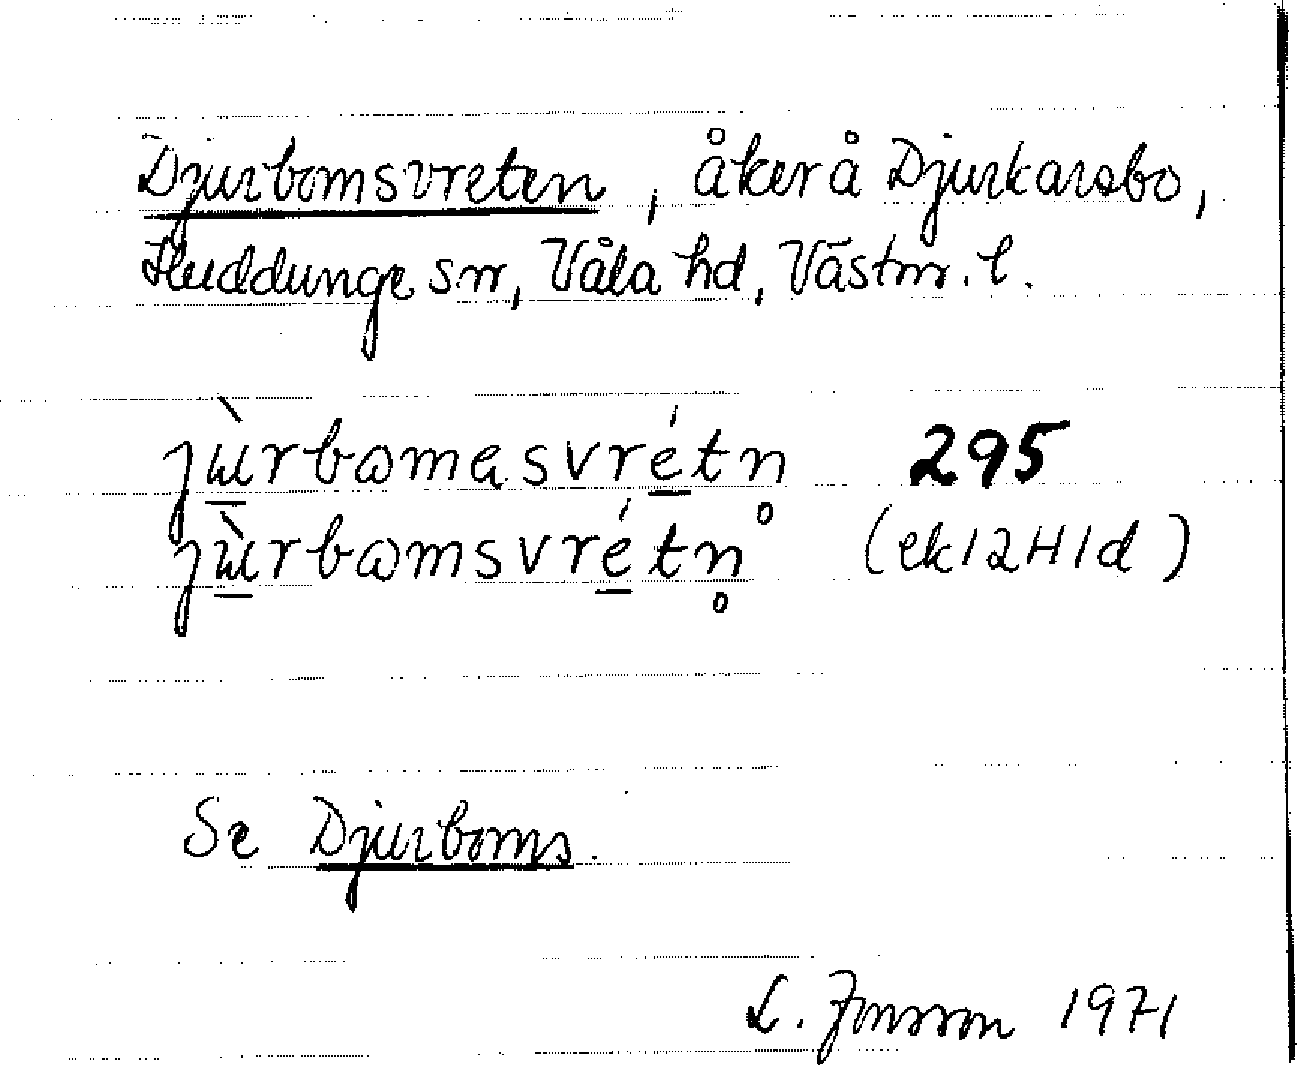 Djurbomsvreten, åker å Djurkarsbo,
Huddunge sn, Våla hd, Västm. l.
jùrbωmasvrétn̥ 295
jùrbωmsvrétn̥ (ek 12H1d)
Se Djurboms.
L. Jonsson 1971